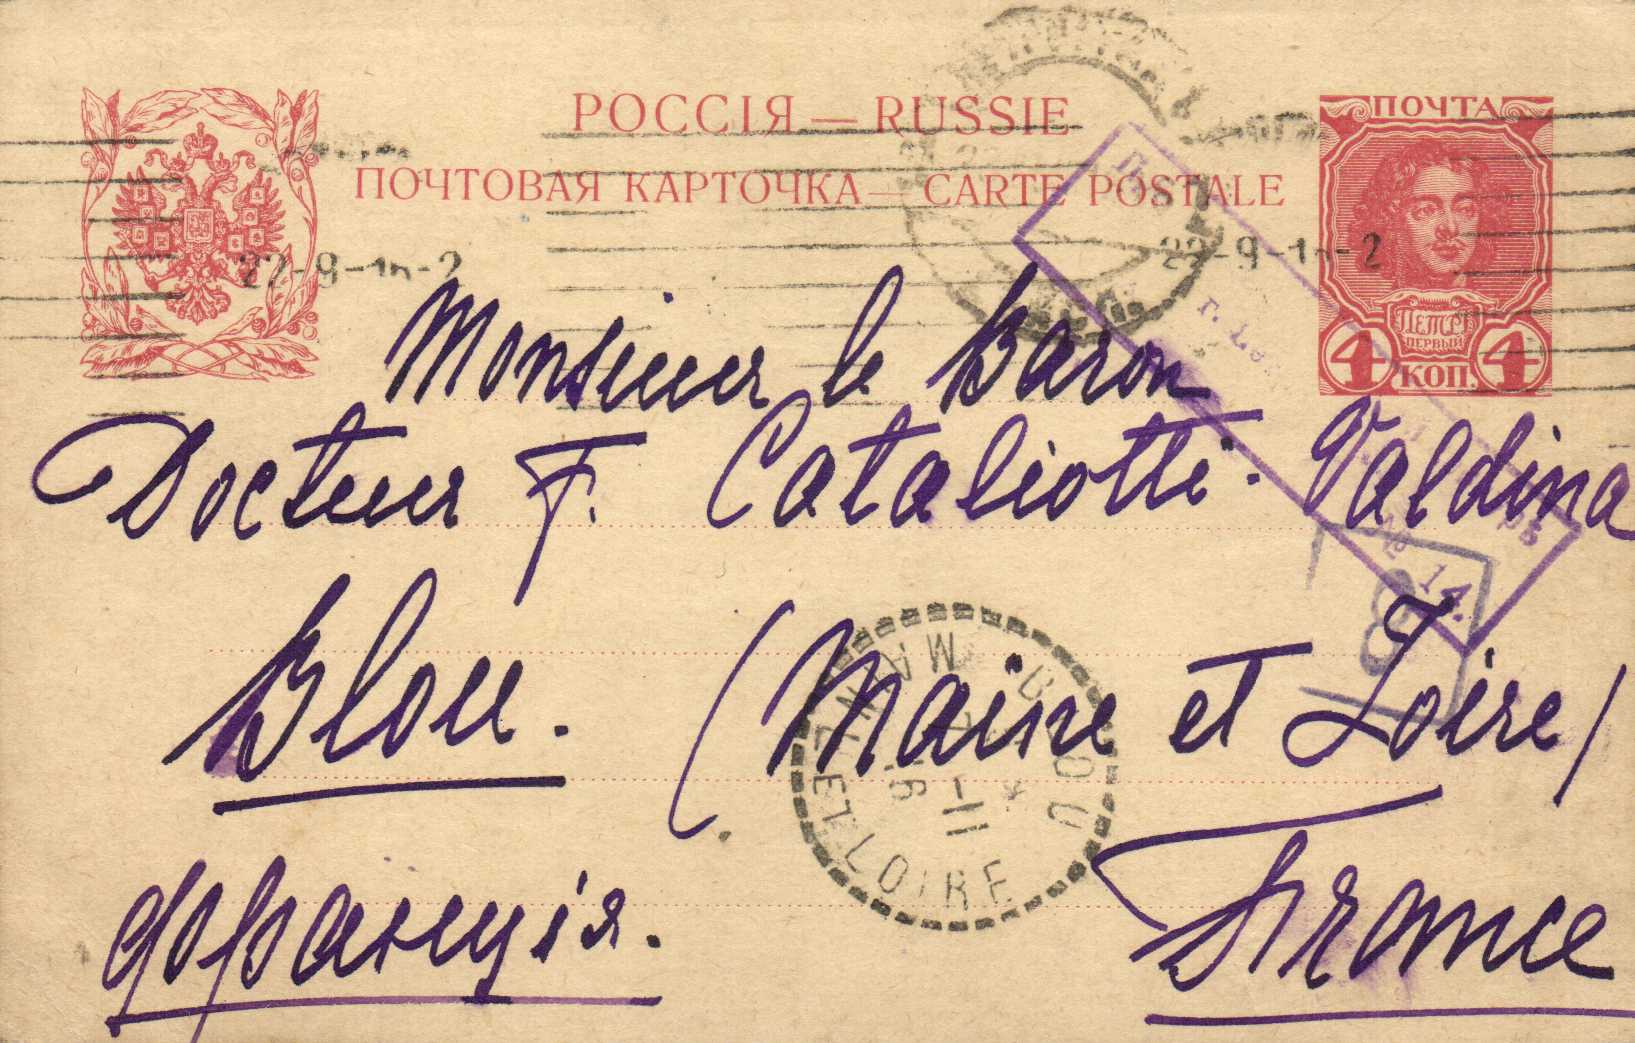 РОССІЯ — RUSSIE
ПОЧТОВАЯ КАРТОЧКА — CARTE POSTALE
ПОЧТА
ПЕТРЪ ПЕРВЫЙ
4 КОП. 4
22-9-16-2
22-9-16-2
Monsieur le Baron
Docteur F. Cataliotti-Valdina
Blou. (Maine et Loire)
Франція. France
№ 14.
BLOU
MAINE ET LOIRE
11
16